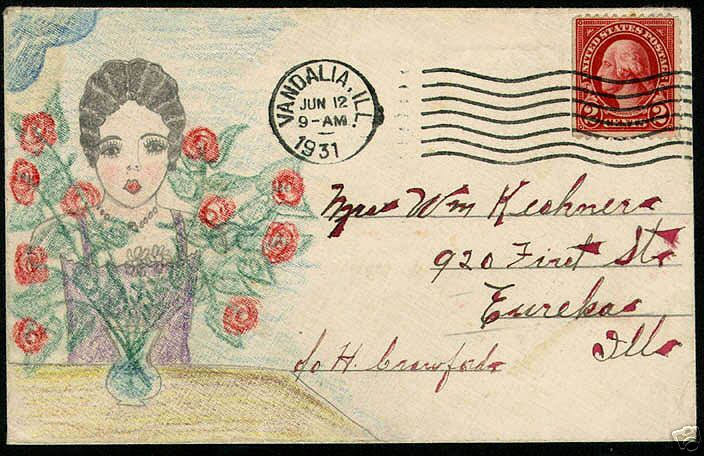 VANDALIA, ILL.
JUN 12
9-AM
1931
UNITED STATES POSTAGE
2 CENTS 2
Mrs Wm Keshner
920 First St.
Eureka
Ills
c/o H. Crawford